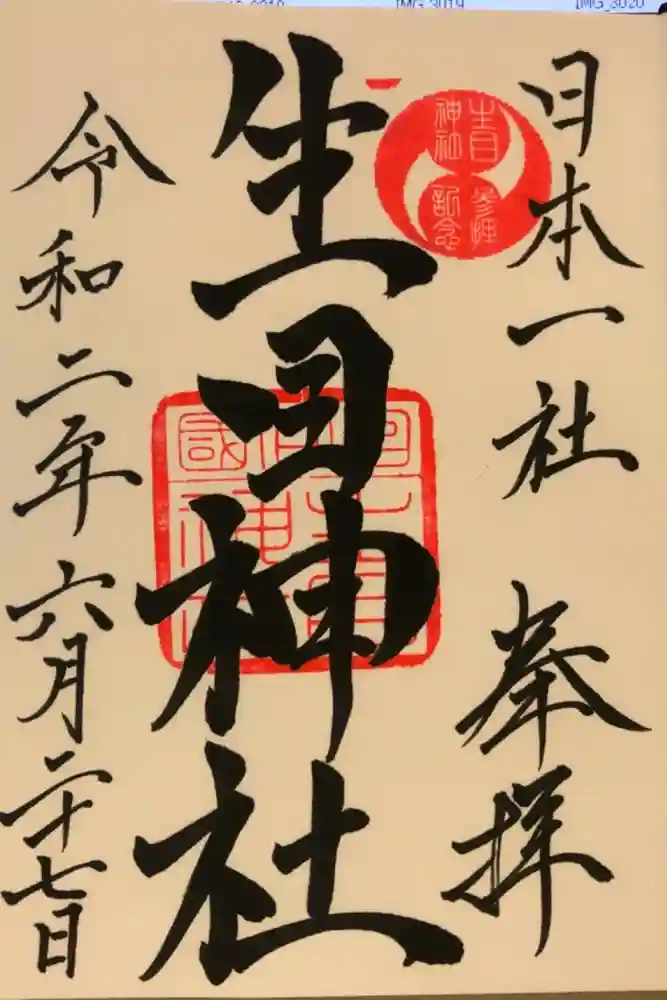 IMG_3019
IMG_3020
日本一社
奉拝
生目
神社
参拝
記念
生目神社
令和二年六月二十七日